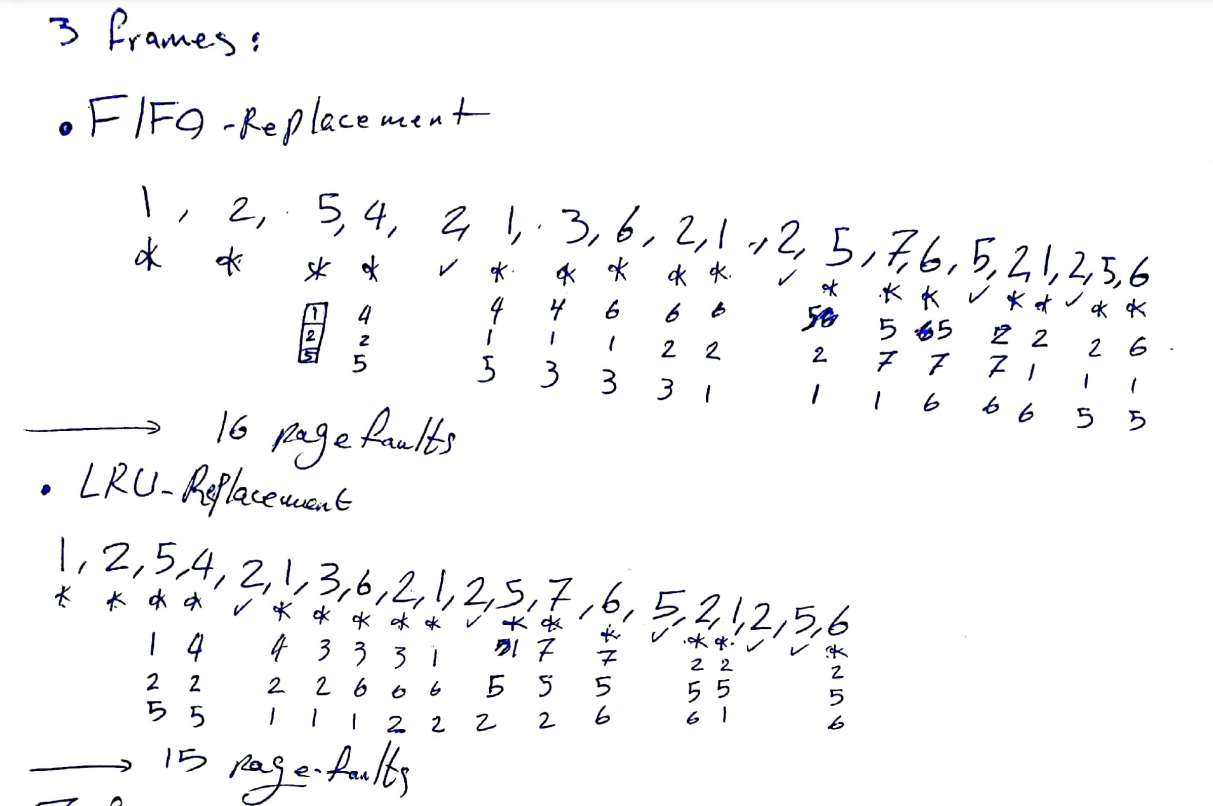 3 frames:
• FIFO-Replacement
1, 2, 5, 4, 2, 1, 3, 6, 2, 1, 2, 5, 7, 6, 5, 2, 1, 2, 5, 6
* * * * ✓ * * * * * ✓ * * * ✓ * * ✓ * *
1 4 4 4 6 6 6 5 5 5 2 2 2 6
2 2 1 1 1 2 2 2 7 7 7 1 1 1
5 5 5 3 3 3 1 1 1 6 6 6 5 5
→ 16 page faults
• LRU-Replacement
1, 2, 5, 4, 2, 1, 3, 6, 2, 1, 2, 5, 7, 6, 5, 2, 1, 2, 5, 6
* * * * ✓ * * * * * ✓ * * * ✓ * * ✓ ✓ *
1 4 4 3 3 3 1 1 7 7 2 2 2
2 2 2 2 6 6 6 5 5 5 5 5 5
5 5 1 1 1 2 2 2 2 6 6 1 6
→ 15 page-faults